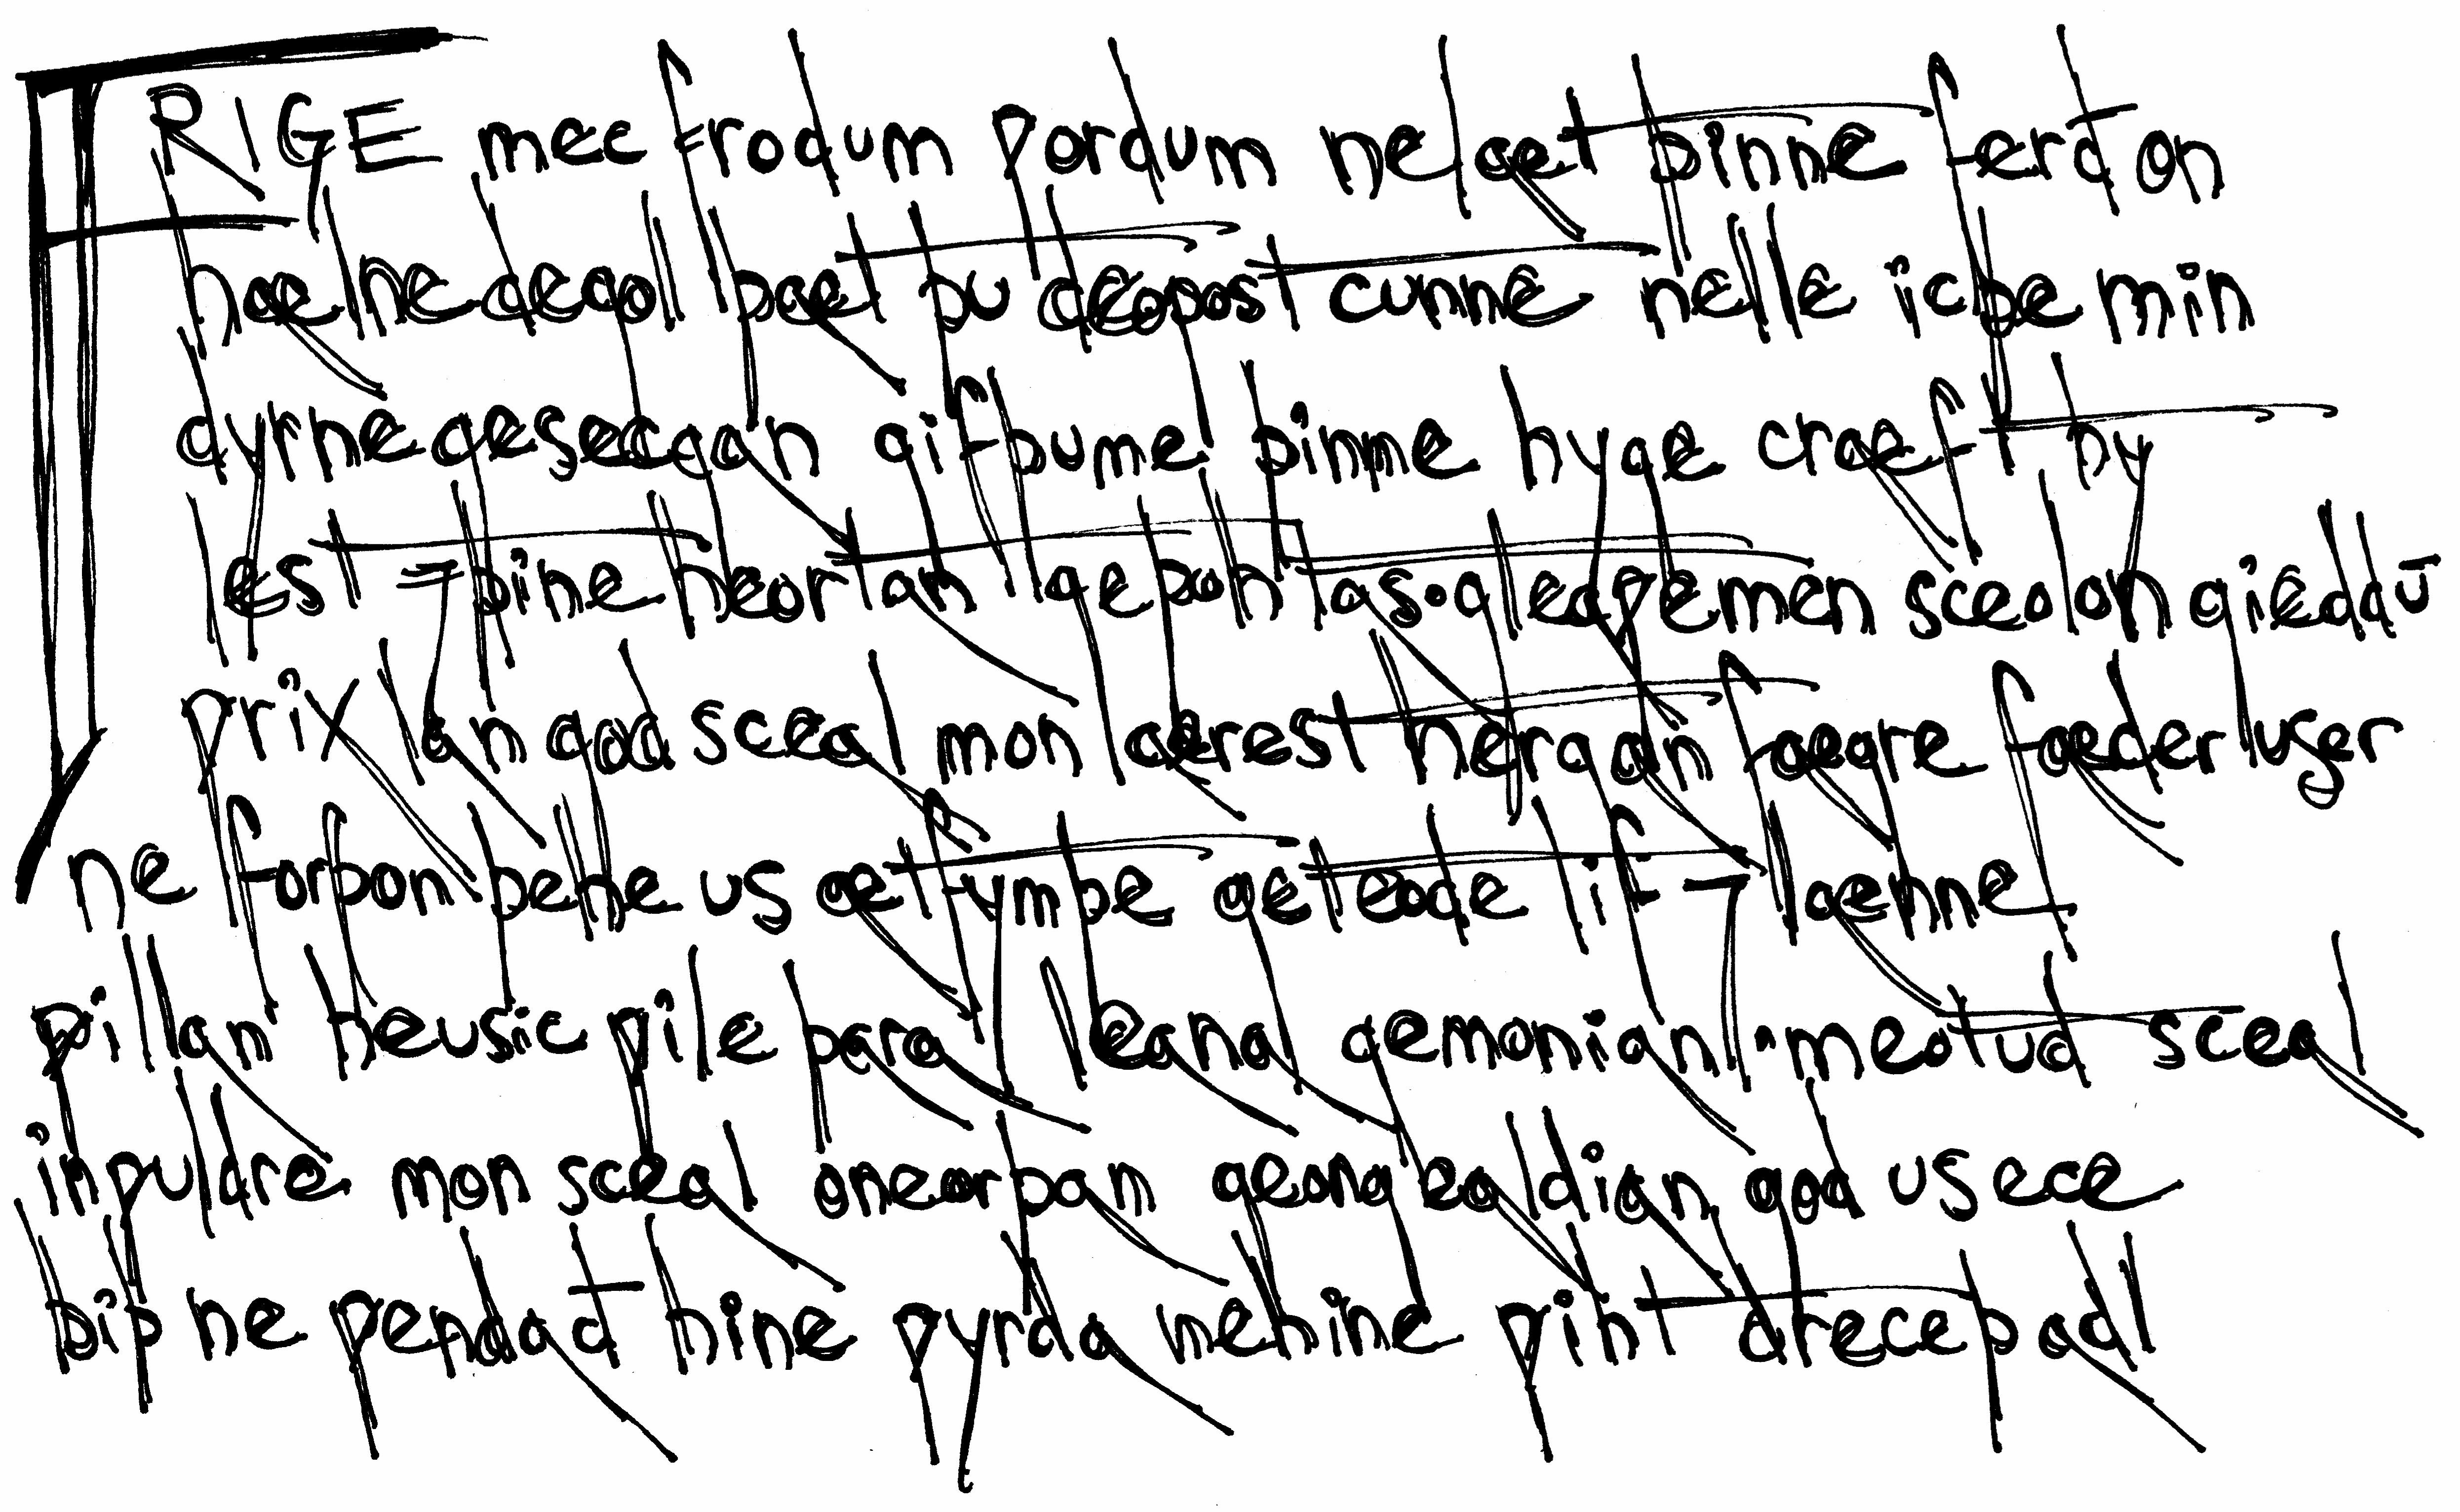 FRIGE mec frodum ƿordum ne læt þinne ferð on
hælne degol þæt þu deopost cunne nelle ic þe min
dyrne gesecgan gif þu me þinne hyge cræft hy
lest ⁊ þine heortan geþohtas · gleaƿe men sceolon gieddū
ƿrixlan god sceal mon ærest hergan fægre fæder user
ne forþon þe he us æt frymþe geteode lif ⁊ lænne
ƿillan he usic ƿile þara leana gemonian · meotud sceal
in ƿuldre mon sceal on eorþan geong ealdian god us ece
biþ ne ƿendað hine ƿyrda ne hine ƿiht dreceþ adl